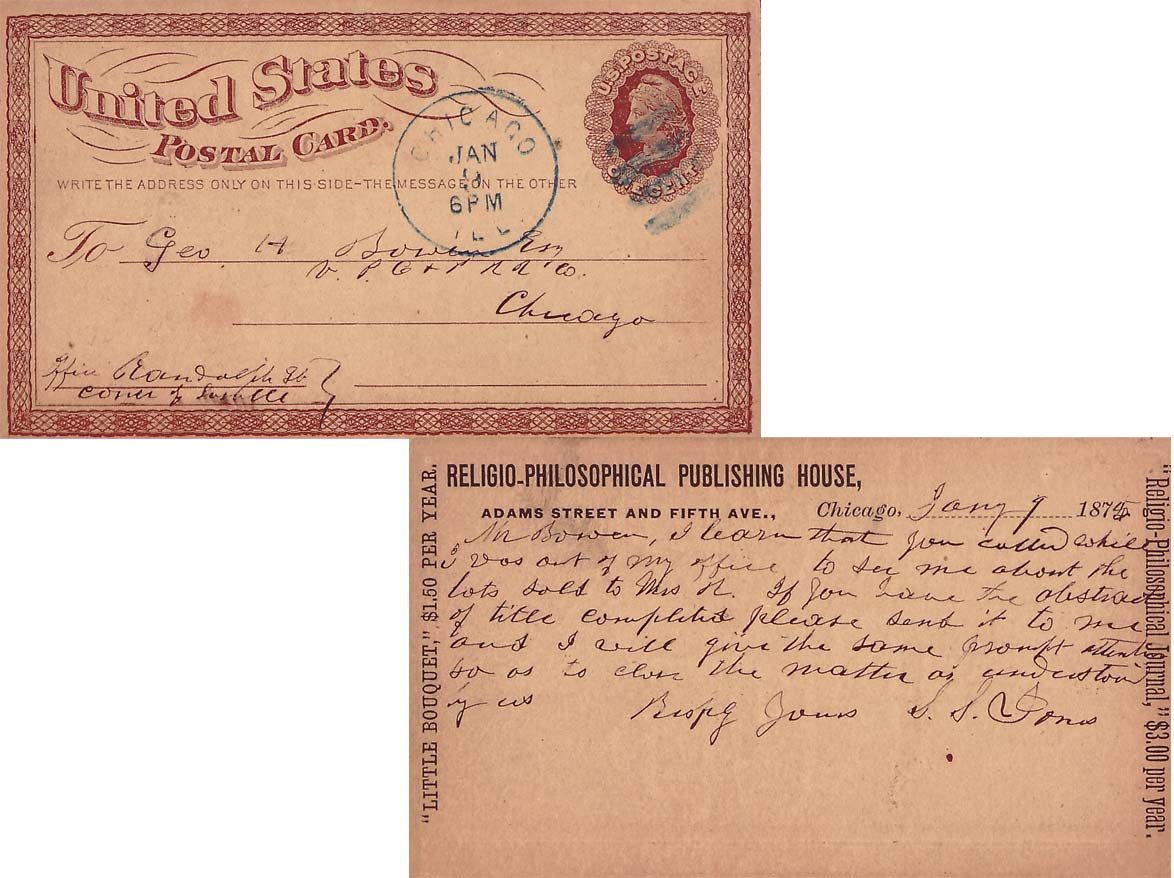 United States
POSTAL CARD.
U.S. POSTAGE
ONE CENT
CHICAGO
JAN
9
6PM
ILL
WRITE THE ADDRESS ONLY ON THIS SIDE–THE MESSAGE ON THE OTHER
To Geo. H Bowen Esq
V. P.
Co.
Chicago
Office Randolph St
corner of Lasalle
"LITTLE BOUQUET," $1.50 PER YEAR.
RELIGIO-PHILOSOPHICAL PUBLISHING HOUSE,
ADAMS STREET AND FIFTH AVE.,
Chicago, Jany 9 187
Mr Bowen, I learn that you called while
I was out of my office to see me about the
lots sold to Mrs H. If you have the abstract
of title completed please send it to me
and I will give the same prompt attenti
so as to close the matter as understood
by us
Respy Yours S. S. Jones
"Religio-Philosophical Journal," $3.00 per year.